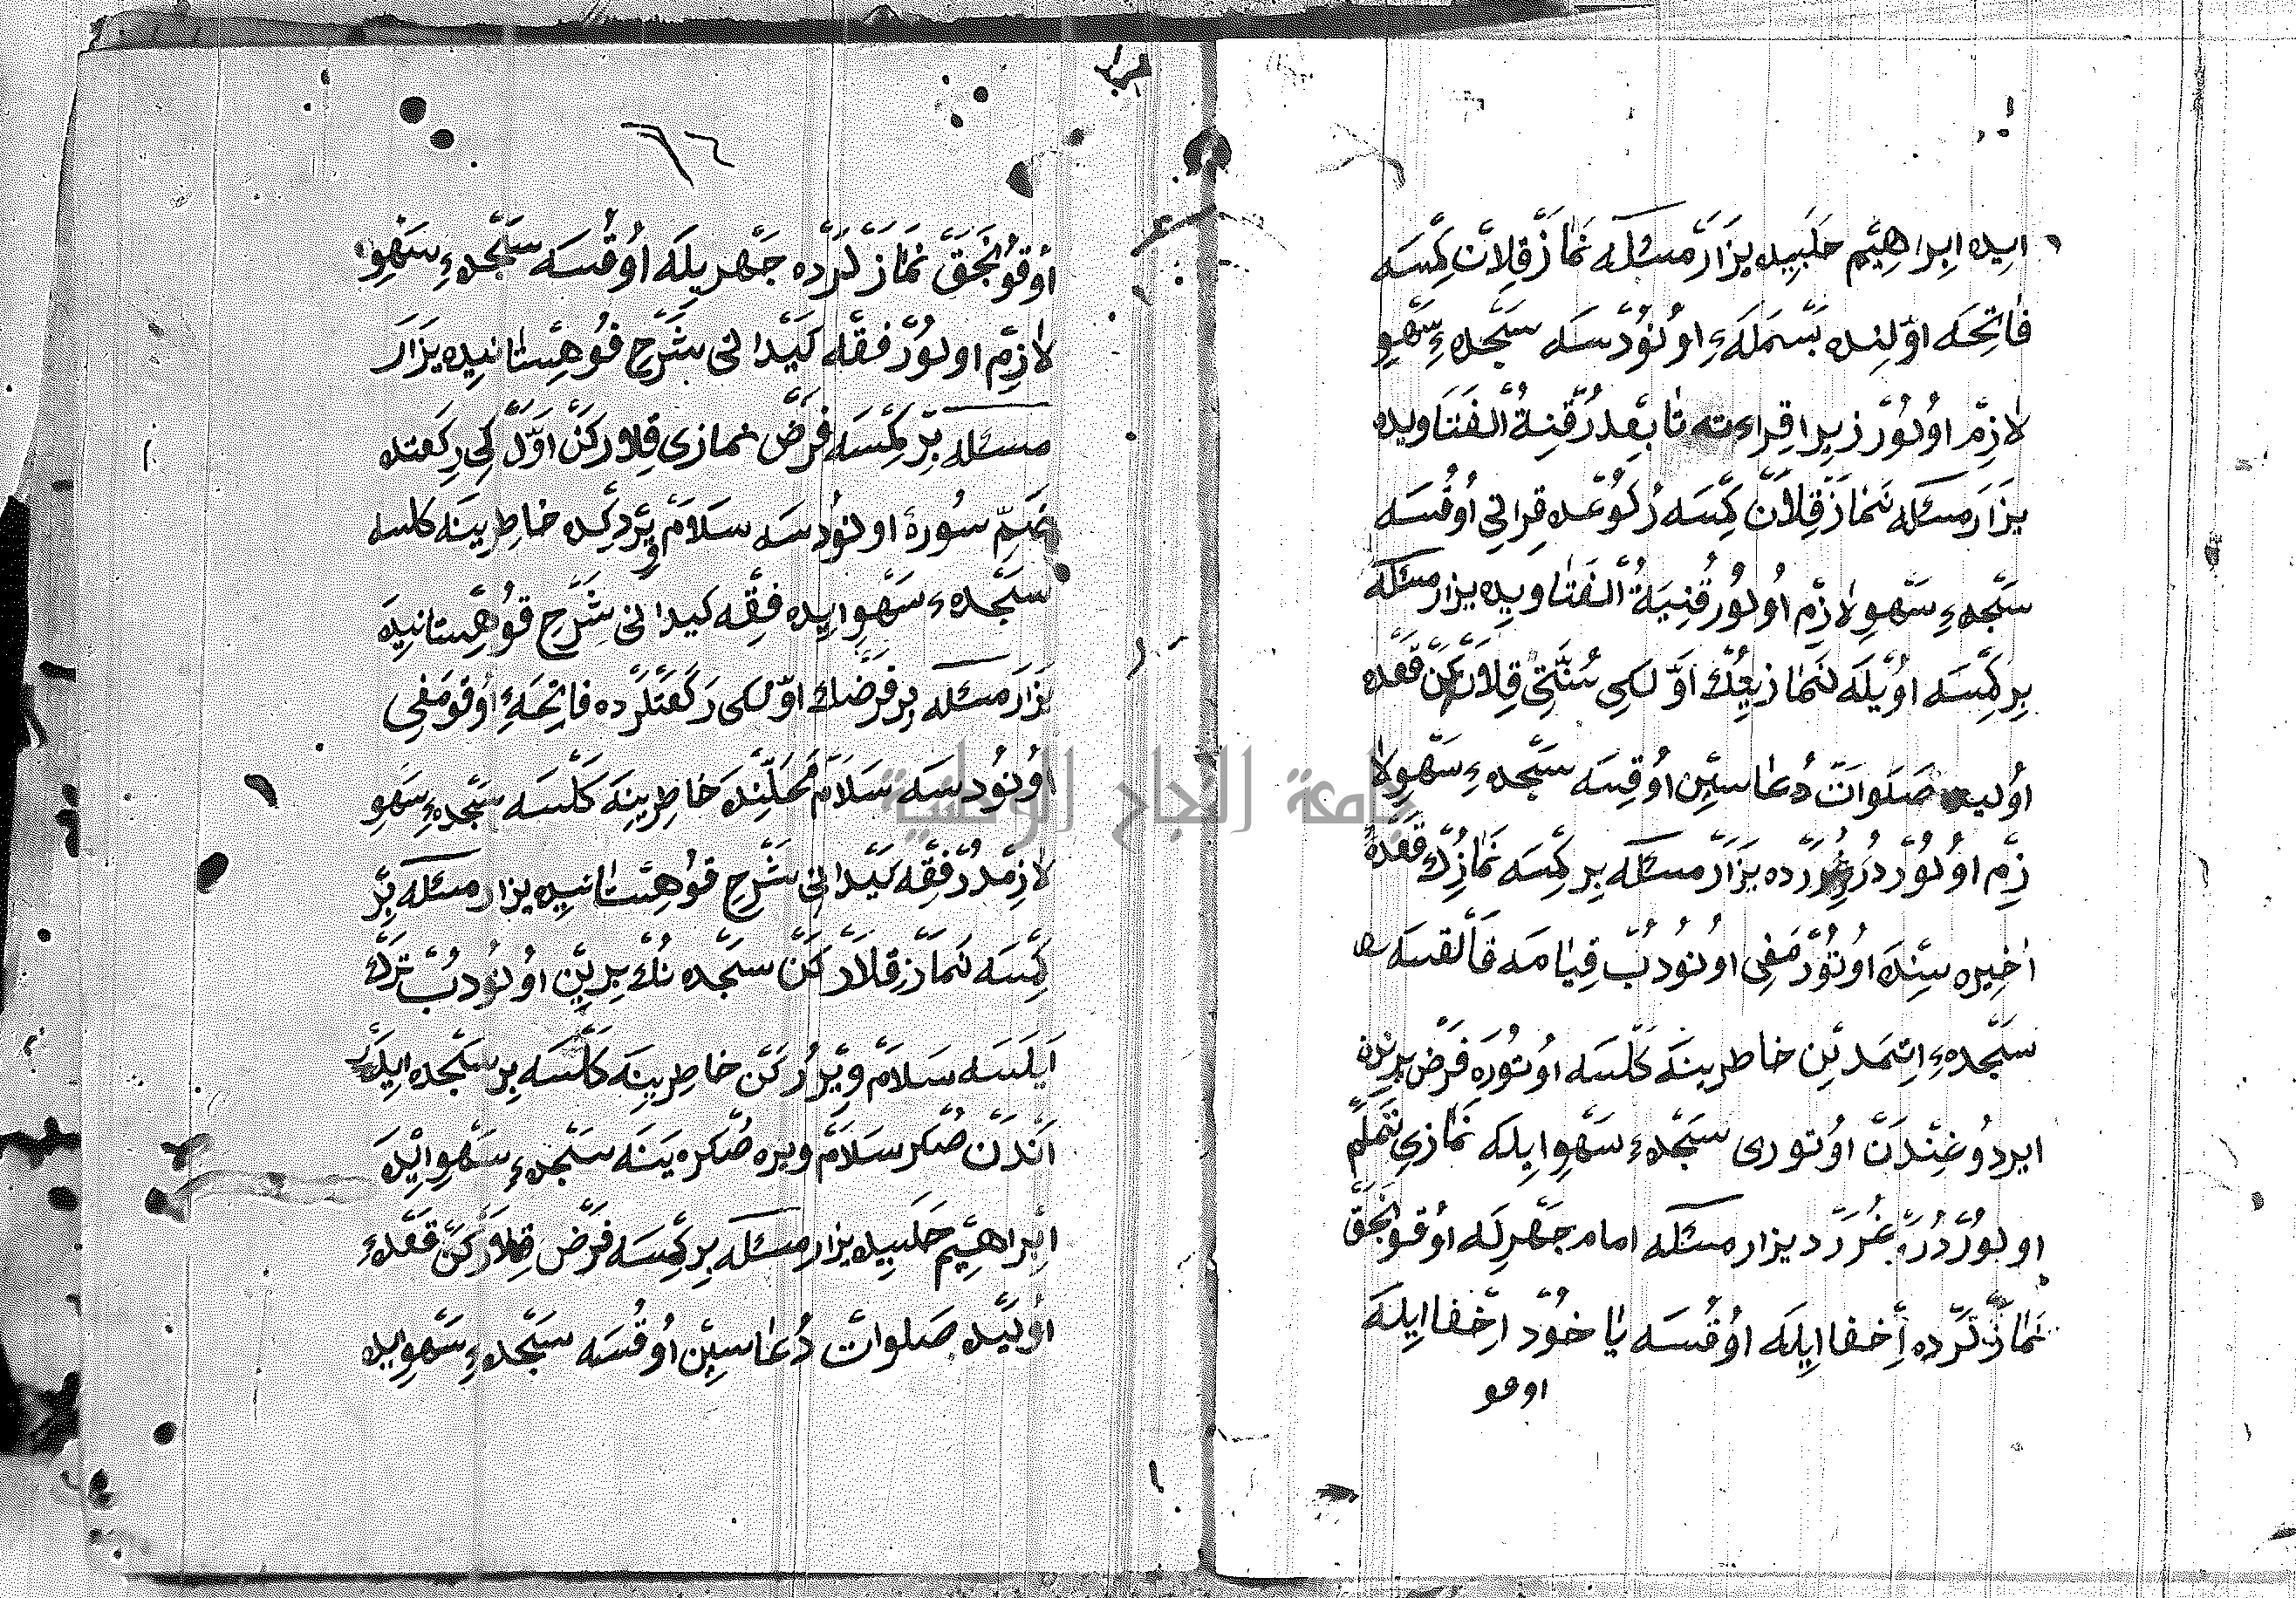 ايده ابراهيم حلبيده يزار مسئله نماز قلان كمسه
فاتحه اولنده بسمله ءِ اونودسه سجده ءِ سهو
لازم اولور زيرا قراءته تابعدر قنية الفتاويده
يزار مسئله نماز قلان كمسه ركوعده قراني اوقسه
سجده ءِ سهو لازم اولور قنية الفتاويده يزار مسئله
بر كمسه اويله نمازينك اول كى سنتى قلاركن قعده
اوليده صلوات دعاسين اوقسه سجده ءِ سهو لا
زم اولور درر غررده يزار مسئله بر كمسه نمازك قعده
اخيره سنده اوتورمغى اونودب قيامه قالقسه
سجده ءِ اتمدين خاطرينه كلسه اوتوره فرض يرينه
ايردوغندن اوتورى سجده ءِ سهو ايله نمازى تمام
اولور درر غررد يزار مسئله امام جهرله اوقونجق
نمازلرده اخفا ايله اوقسه ياخود اخفا ايله
اوقو
٦٦
اوقونجق نمازلرده جهر يله اوقسه سجده ءِ سهو
لازم اولور فقه كيدانى شرح قوهستانيده يزار
مسئله بر كمسه فرض نمازى قلاركن اول كى ركعتده
ضم سورۀ اونودسه سلام ويردكده خاطرينه كلسه
سجده ء سهو ايده فقه كيدانى شرح قوهستانيده
يزار مسئله بر فرضك اول كى ركعتلرده فاتحه ءِ اوقومغى
اونودسه سلام محلنده خاطرينه كلسه سجده ءِ سهو
لازمدر فقه كيدانى شرح قوهستانيده يزار مسئله بر
كمسه نماز قلاركن سجده نك بريين اونودب ترك
ايلسه سلام ويروركن خاطرينه كلسه بر سجده ايليه
اندن صكر سلام ويره صكره ينه سجده ءِ سهو ايده
ابراهيم حلبيده يزار مسئله بر كمسه فرض قلاركن قعده ءِ
اوليده صلوات دعاسين اوقسه سجده ءِ سهو ايده
جامعة النجاح الوطنية